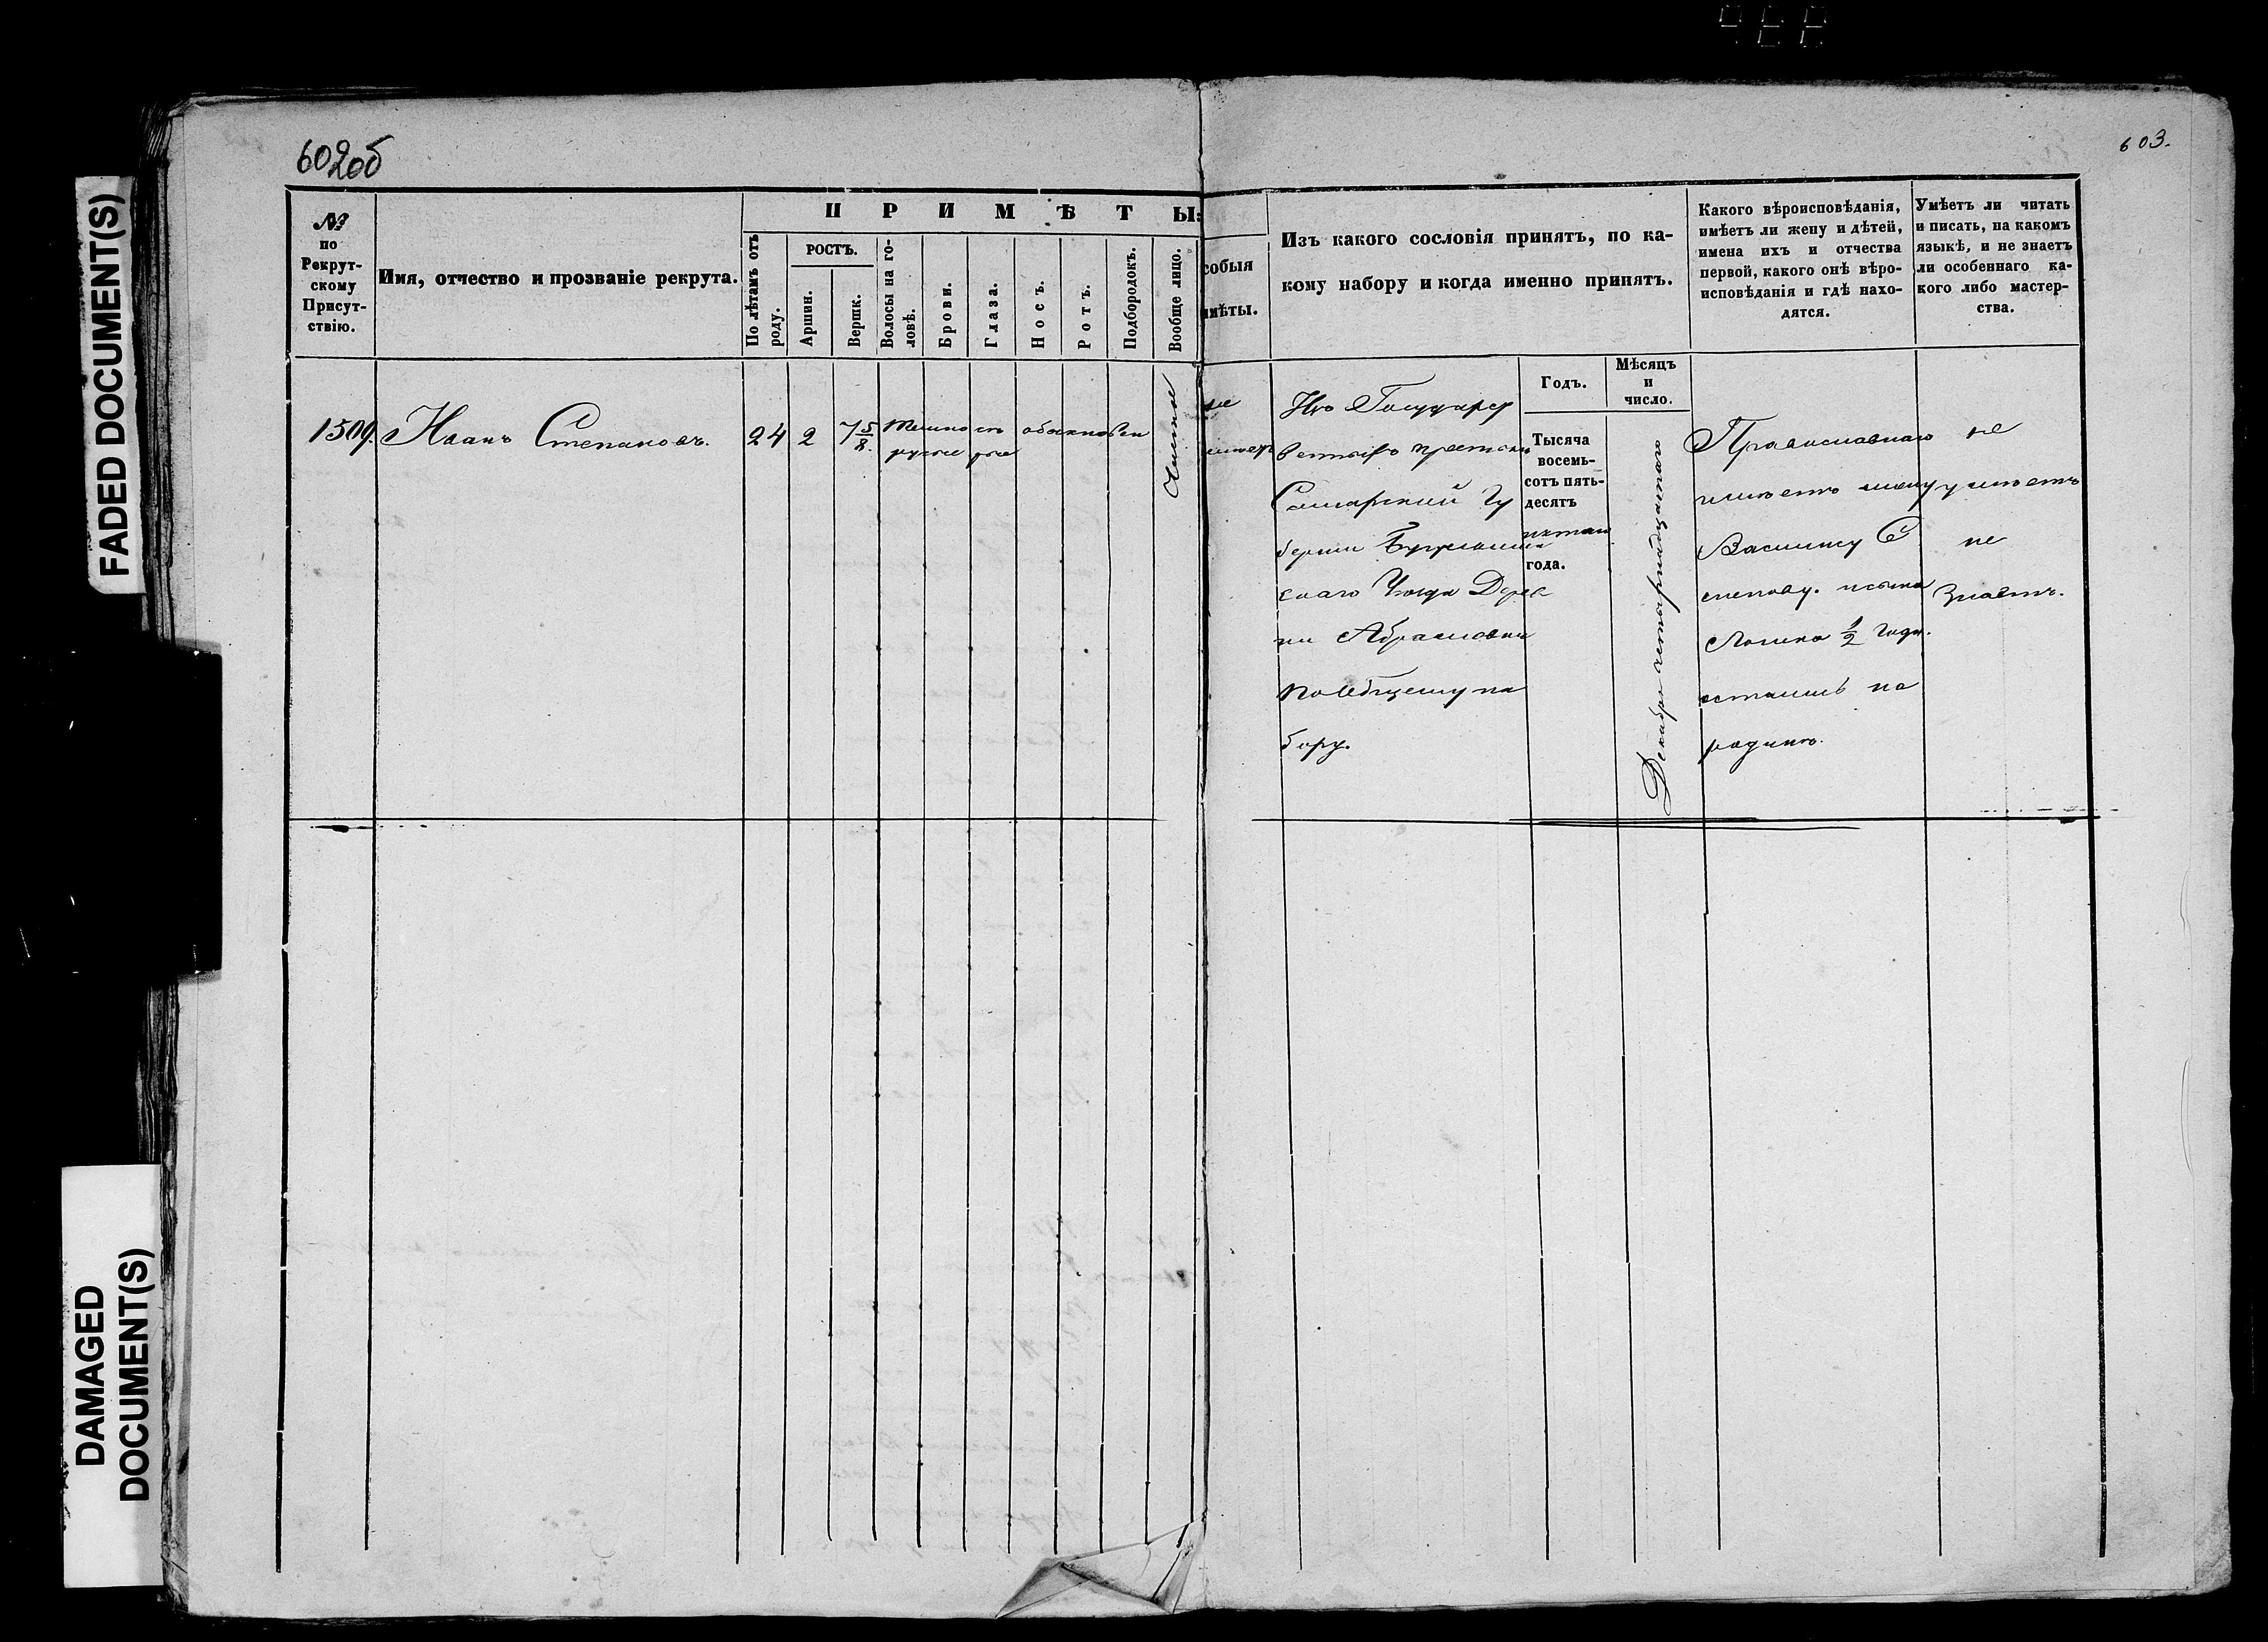 602об
603.
№
по
Рекрут-
скому
Присут-
ствію.
Имя, отчество и прозваніе рекрута.
ПРИМѢТЫ:
По лѣтамъ отъ
роду.
РОСТЪ.
Аршин.
Вершк.
Волосы на го-
ловѣ.
Брови.
Глаза.
Носъ.
Ротъ.
Подбородокъ.
Вообще лицо.
собыя
имѣты.
Изъ какого сословія принятъ, по ка-
кому набору и когда именно принятъ.
Какого вѣроисповѣданія,
имѣетъ ли жену и дѣтей,
имена ихъ и отчества
первой, какого онѣ вѣро-
исповѣданія и гдѣ нахо-
дятся.
Умѣетъ ли читать
и писать, на какомъ
языкѣ, и не знаетъ
ли особеннаго ка-
кого либо мастер-
ства.
Годъ.
Мѣсяцъ
и
число.
1509.
Иванъ Степановъ.
24
2
7 5/8.
темно
русые
обыкновен
Чистое
не
Изъ Государс
венныхъ крестьян
Самарской Гу
берніи Бугульмин
скаго Уѣзда Дерев
ни Абрамовки
по Общему на
бору.
Тысяча
восемь-
сотъ пять-
десятъ
пятаго
года.
Декабря четырнадцатаго
Православнаго
имѣетъ жену
Василису С
менову. и сына
Логина 1/2 года.
остались на
родинѣ.
не
умѣетъ
не
знаетъ.
FADED DOCUMENT(S)
DAMAGED
DOCUMENT(S)